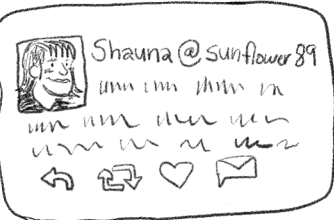 Shauna @ sunflower 89